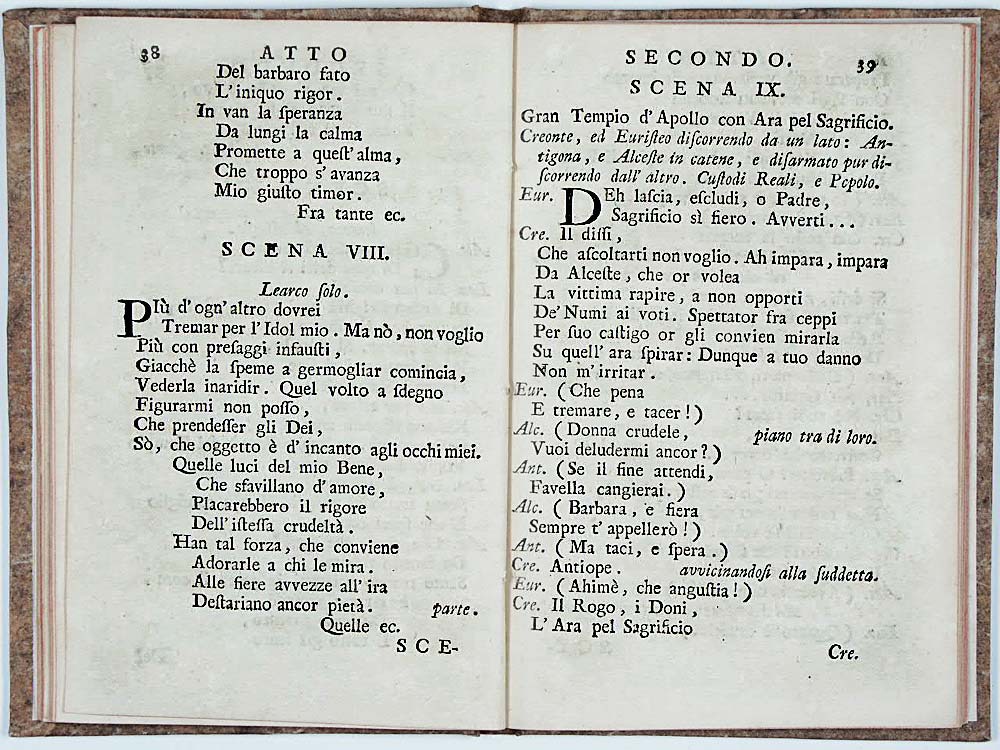 38 ATTO
Del barbaro fato
L'iniquo rigor.
In van la ſperanza
Da lungi la calma
Promette a queſt'alma,
Che troppo s'avanza
Mio giuſto timor.
Fra tante ec.
SCENA VIII.
Learco ſolo.
PIù d'ogn'altro dovrei
Tremar per l'Idol mio. Ma nò, non voglio
Più con preſaggi infauſti,
Giacchè la ſpeme a germogliar comincia,
Vederla inaridir. Quel volto a ſdegno
Figurarmi non poſſo,
Che prendeſſer gli Dei,
Sò, che oggetto è d'incanto agli occhi miei.
Quelle luci del mio Bene,
Che sfavillano d'amore,
Placarebbero il rigore
Dell'iſteſſa crudeltà.
Han tal forza, che conviene
Adorarle a chi le mira.
Alle fiere avvezze all'ira
Deſtariano ancor pietà. parte.
Quelle ec.
SCE-
SECONDO. 39
SCENA IX.
Gran Tempio d'Apollo con Ara pel Sagrificio.
Creonte, ed Euriſteo diſcorrendo da un lato: An-
tigona, e Alceſte in catene, e diſarmato pur di-
ſcorrendo dall'altro. Cuſtodi Reali, e Popolo.
Eur. DEh laſcia, eſcludi, o Padre,
Sagrificio sì fiero. Avverti...
Cre. Il diſſi,
Che aſcoltarti non voglio. Ah impara, impara
Da Alceſte, che or volea
La vittima rapire, a non opporti
De'Numi ai voti. Spettator fra ceppi
Per ſuo caſtigo or gli convien mirarla
Su quell'ara ſpirar: Dunque a tuo danno
Non m'irritar.
Eur. (Che pena
E tremare, e tacer!)
Alc. (Donna crudele, piano tra di loro.
Vuoi deludermi ancor?)
Ant. (Se il fine attendi,
Favella cangierai.)
Alc. (Barbara, e fiera
Sempre t'appellerò!)
Ant. (Ma taci, e ſpera.)
Cre. Antiope. avvicinandoſi alla ſuddetta.
Eur. (Ahimè, che anguſtia!)
Cre. Il Rogo, i Doni,
L'Ara pel Sagrificio
Cre.